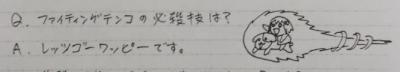 Q. ファイティングテンコの必殺技は?
A. レッツゴーワッピーです。